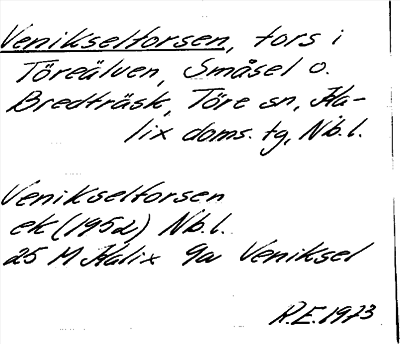 Venikselforsen, fors i
Töreälven, Småsel o.
Bredträsk, Töre sn, Ka-
lix doms. tg, Nb. l.
Venikselforsen
ek (1952) Nb. l.
25 M Kalix 9a Veniksel
R.E. 1973